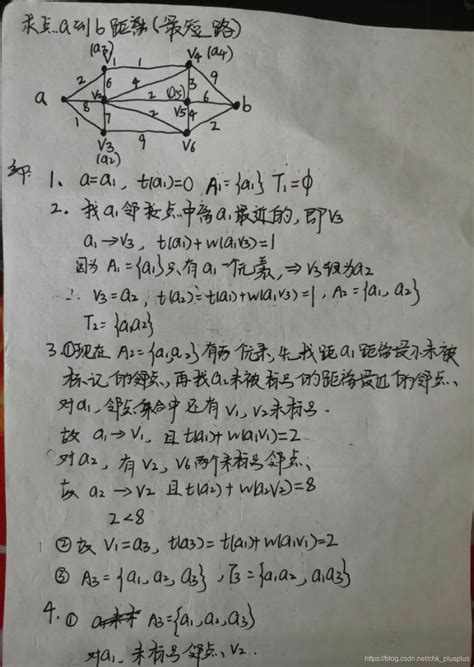 求点a到b距离(最短路)
(a3) V1 1 V4 (a4)
2 6 4 3 9
a 8 V2 2 (a5) V5 6 b
1 7 2 4 2
V3 9 V6
(a2)
解:
1、a=a1, t(a1)=0 A1={a1} T1=ϕ
2、找a1邻接点中离a1最近的,即V3
a1→V3, t(a1)+w(a1V3)=1
因为A1={a1}只有a1一个元素,⇒V3组为a2
∴ V3=a2, t(a2)=t(a1)+w(a1V3)=1, A2={a1, a2}
T2={a1a2}
3、①现在A2={a1,a2}有两个元素,先找距a1距离最小未被
标记的邻点、再找a2未被标号的距离最近的邻点、
对a1,邻点集合中还有V1,V2未标号.
故 a1→V1, 且t(a1)+w(a1V1)=2
对a2,有V2,V6两个未标号邻点、
故 a2→V2 且t(a2)+w(a2V2)=8
2<8
②故V1=a3, t(a3)=t(a1)+w(a1V1)=2
③ A3={a1, a2, a3}, T3={a1a2, a1a3}
4、① A3={a1,a2,a3}
对a1,未标号邻点、V2.
https://blog.csdn.net/chk_plusplus